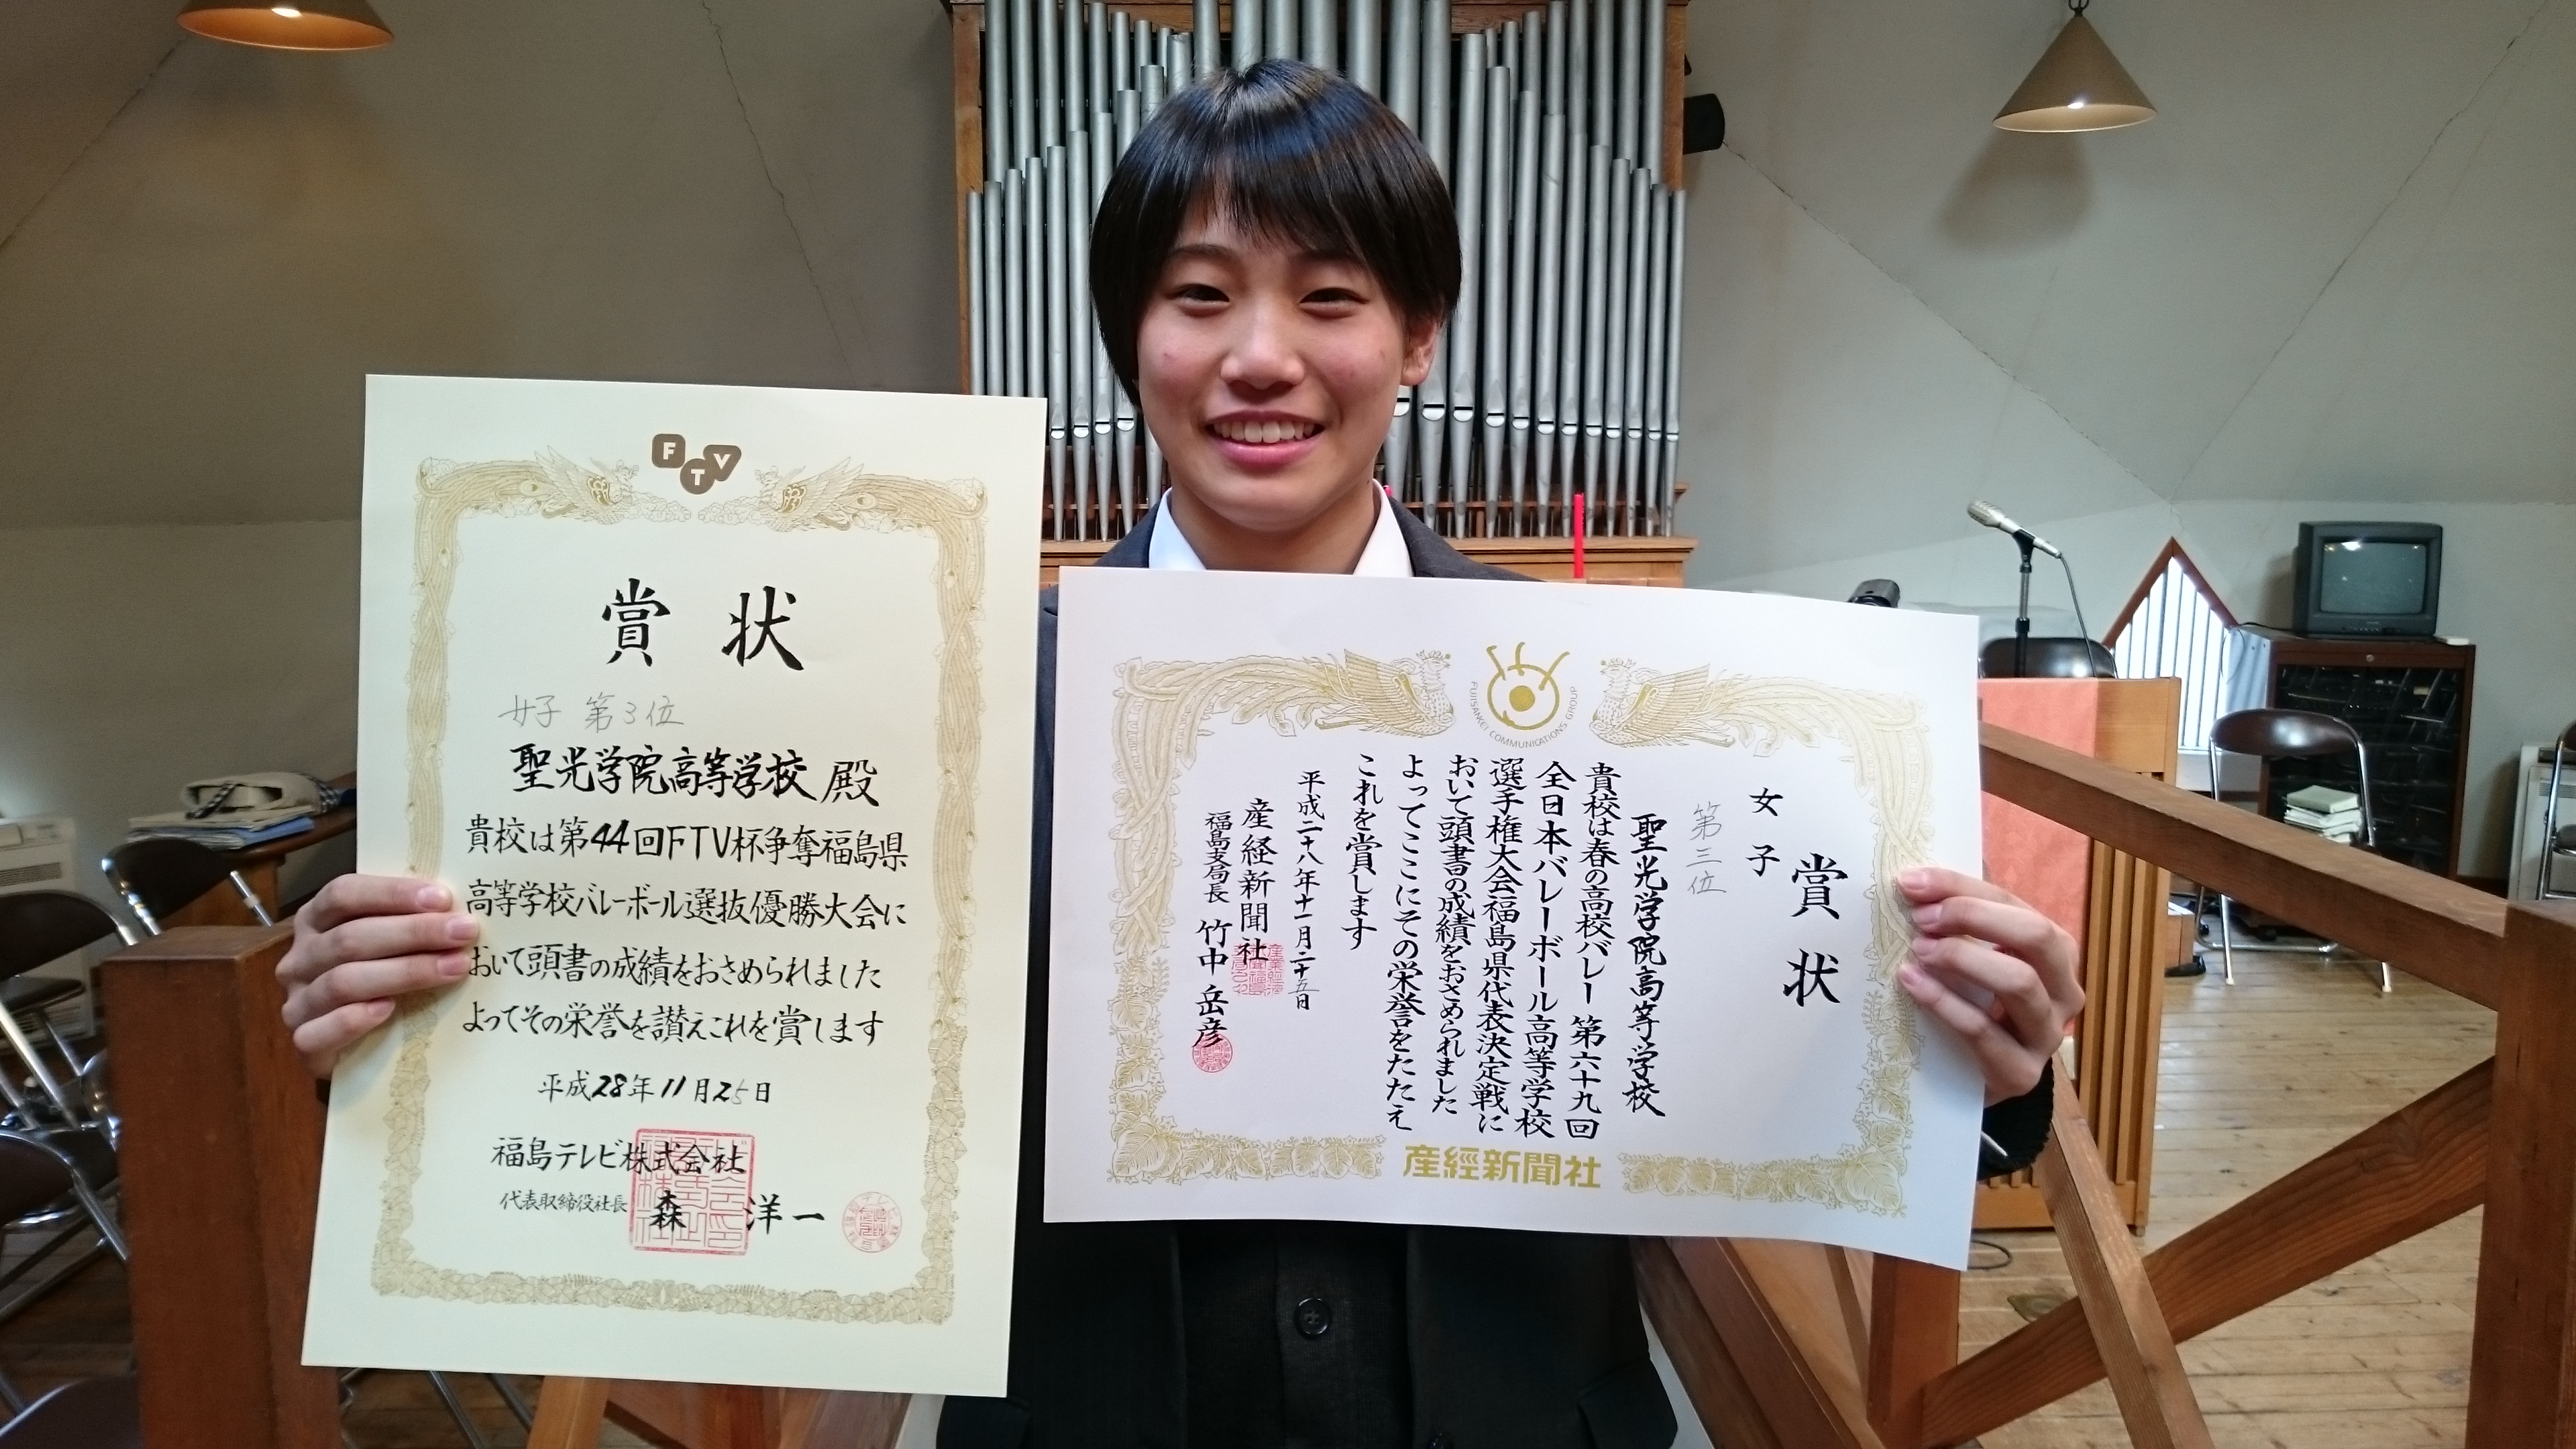 FTV
賞状
女子 第3位
聖光学院高等学校 殿
貴校は第44回FTV杯争奪福島県
高等学校バレーボール選抜優勝大会に
おいて頭書の成績をおさめられました
よってその栄誉を讃えこれを賞します
平成28年11月25日
福島テレビ株式会社
代表取締役社長 森 洋一
FUJISANKEI COMMUNICATIONS GROUP
賞状
女子
第三位
聖光学院高等学校
貴校は春の高校バレー 第六十九回
全日本バレーボール高等学校
選手権大会福島県代表決定戦に
おいて頭書の成績をおさめられました
よってここにその栄誉をたたえ
これを賞します
平成二十八年十一月二十五日
産経新聞社
福島支局長 竹中岳彦
産經新聞社